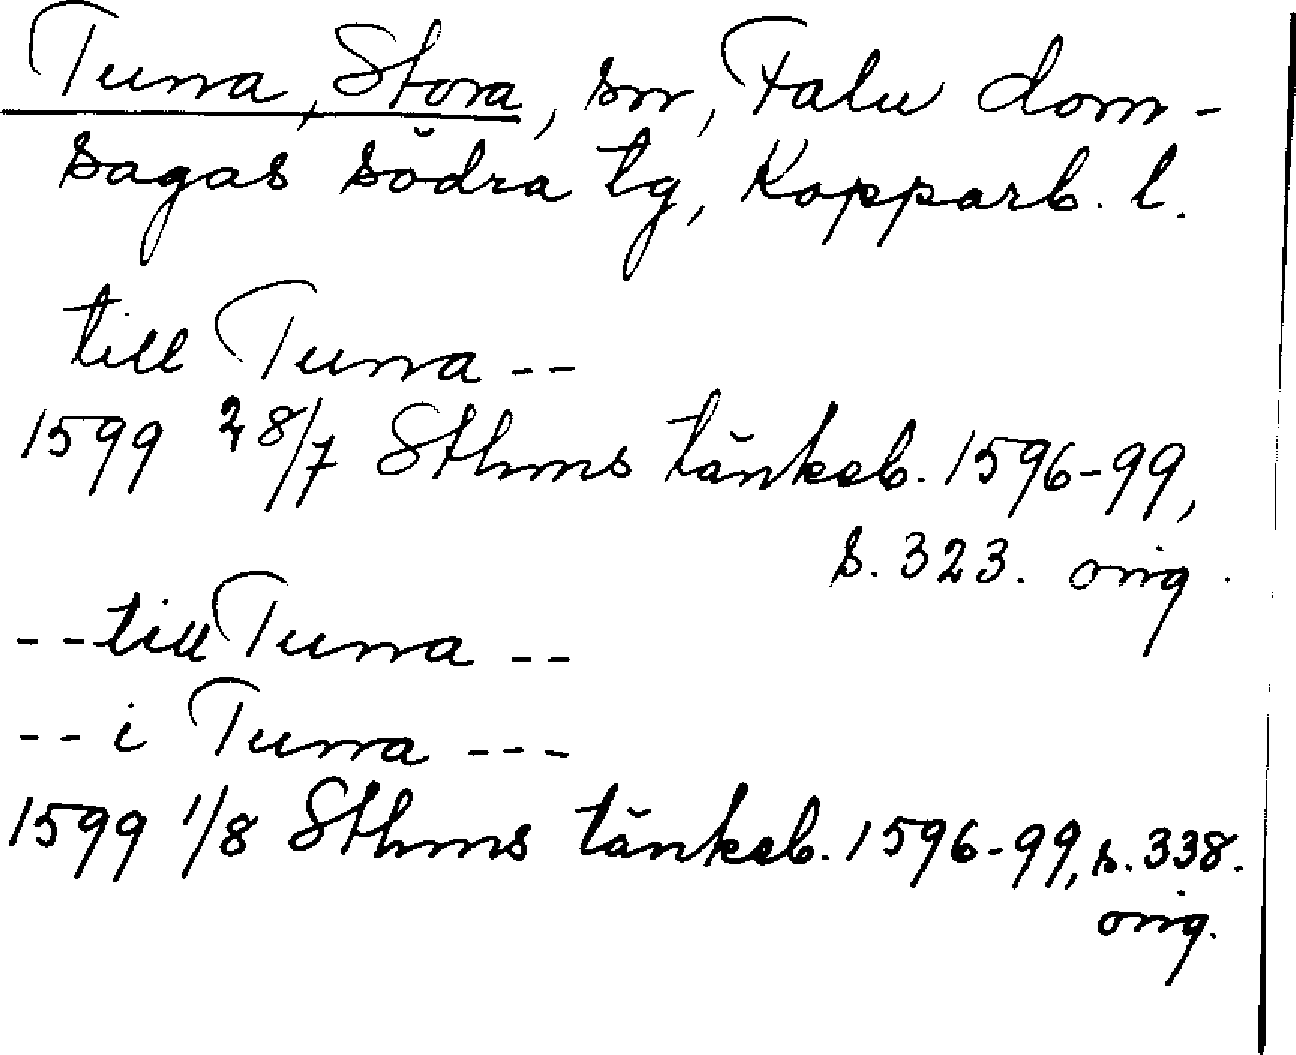 Tuna, Stora, sn, Falu dom-
sagas södra tg, Kopparb. l.
till Tuna --
1599 28/7 Sthms tänkeb. 1596-99,
s. 323. orig.
-- till Tuna --
-- i Tuna ---
1599 1/8 Sthms tänkeb. 1596-99, s. 338.
orig.